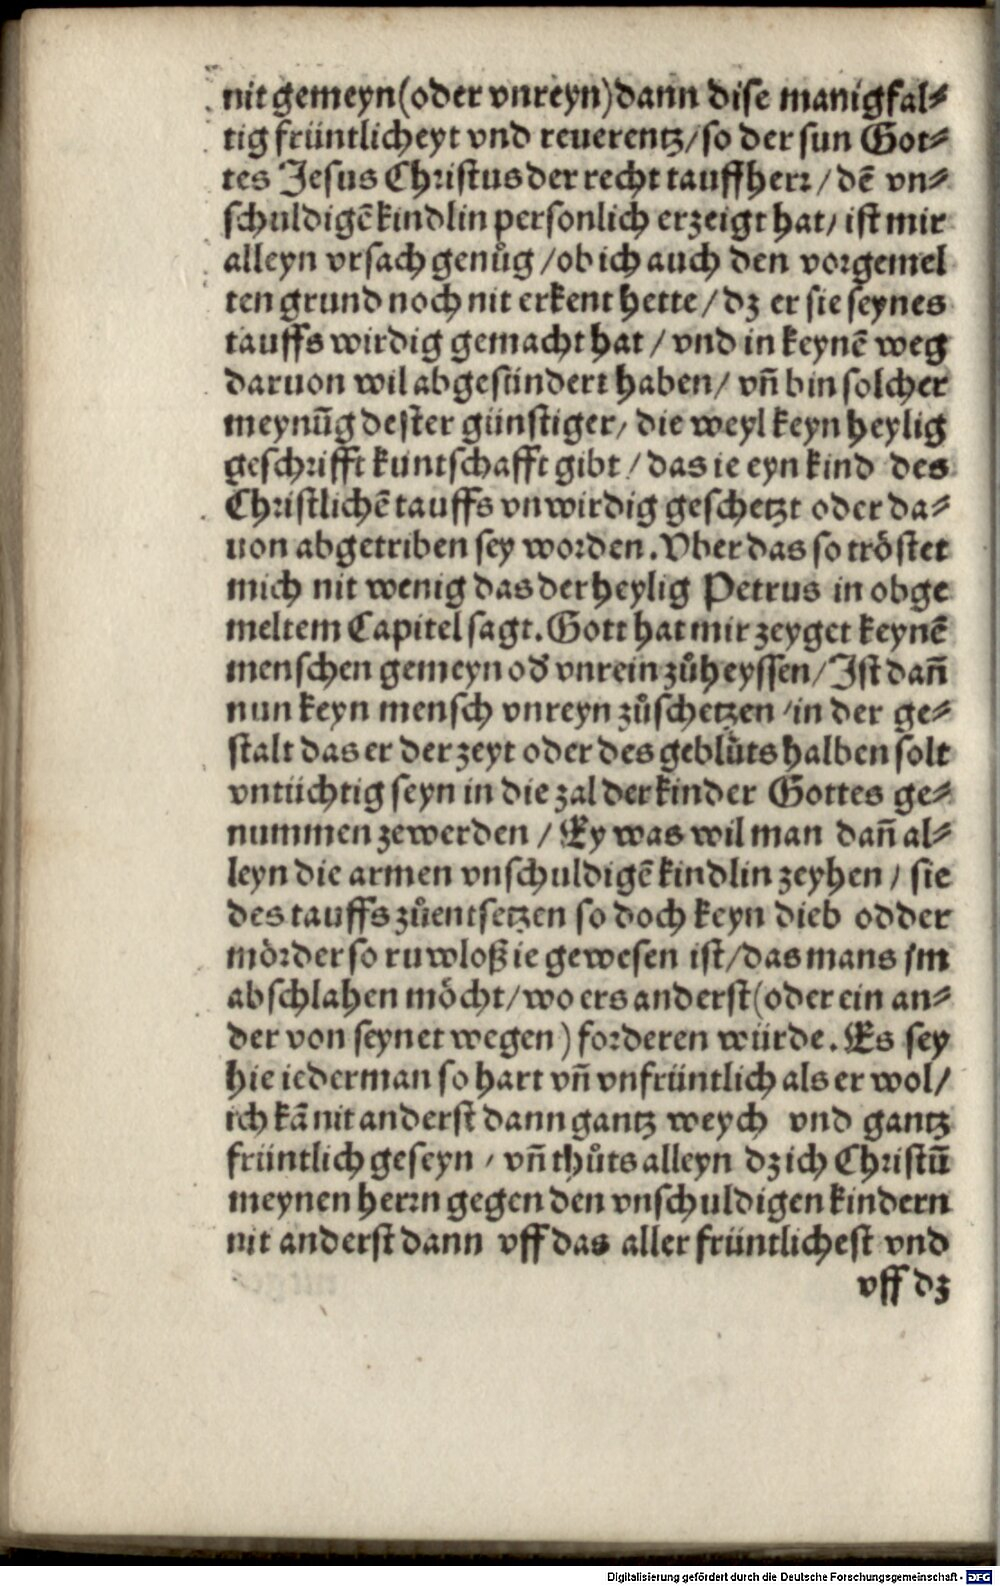 nit gemeyn (oder vnreyn) dann dise manigfal⸗
tig früntlicheyt vnd reuerentz / so der sun Got⸗
tes Jesus Christus der recht tauffherr / dē vn⸗
schuldigē kindlin personlich erzeigt hat / ist mir
alleyn vrsach genůg / ob ich auch den vorgemel
ten grund noch nit erkent hette / dz er sie seynes
tauffs wirdig gemacht hat / vnd in keynē weg
daruon wil abgesündert haben / vn̄ bin solcher
meynūg dester günstiger / die weyl keyn heylig
geschrifft kuntschafft gibt / das ie eyn kind des
Christlichē tauffs vnwirdig geschetzt oder da⸗
uon abgetriben sey worden. Vber das so tröstet
mich nit wenig das der heylig Petrus in obge
meltem Capitel sagt. Gott hat mir zeyget keynē
menschen gemeyn od̛ vnrein zůheyssen / Ist dan̄
nun keyn mensch vnreyn zůschetzen / in der ge⸗
stalt das er der zeyt oder des geblůts halben solt
vntüchtig seyn in die zal der kinder Gottes ge⸗
nummen zewerden / Ey was wil man dan̄ al⸗
leyn die armen vnschuldigē kindlin zeyhen / sie
des tauffs zůentsetzen so doch keyn dieb odder
mörder so ruwloß ie gewesen ist / das mans jm
abschlahen möcht / wo ers anderst (oder ein an⸗
der von seynet wegen) forderen würde. Es sey
hie iederman so hart vn̄ vnfrüntlich als er wol /
ich kā nit anderst dann gantz weych vnd gantz
früntlich geseyn / vn̄ thůts alleyn dz ich Christū
meynen herrn gegen den vnschuldigen kindern
nit anderst dann vff das aller früntlichest vnd
vff dz
Digitalisierung gefördert durch die Deutsche Forschungsgemeinschaft - DFG